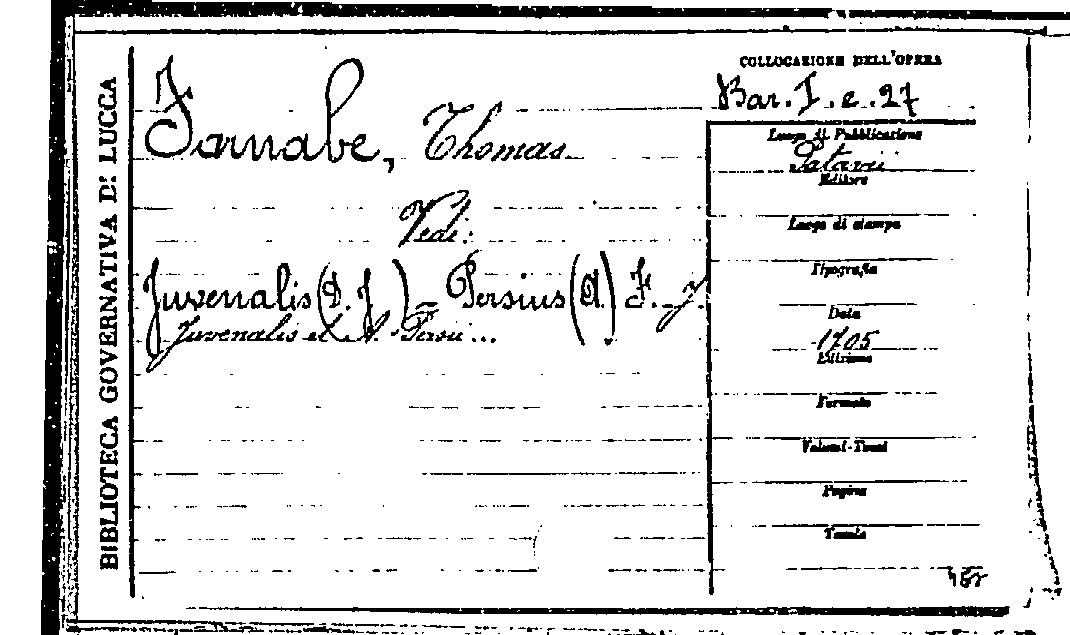 BIBLIOTECA GOVERNATIVA DI LUCCA
Farnabe, Thomas
Vedi:
Juvenalis (D. J.) = Persius (A.) F. J.
Juvenalis et A. Persii ...
COLLOCAZIONE DELL'OPERA
Bar. I. e. 27
Luogo di Pubblicazione
Patavii
Editore
Luogo di stampa
Tipografia
Data
1705
Edizione
Formato
Volumi-Tomi
Pagine
Tavole